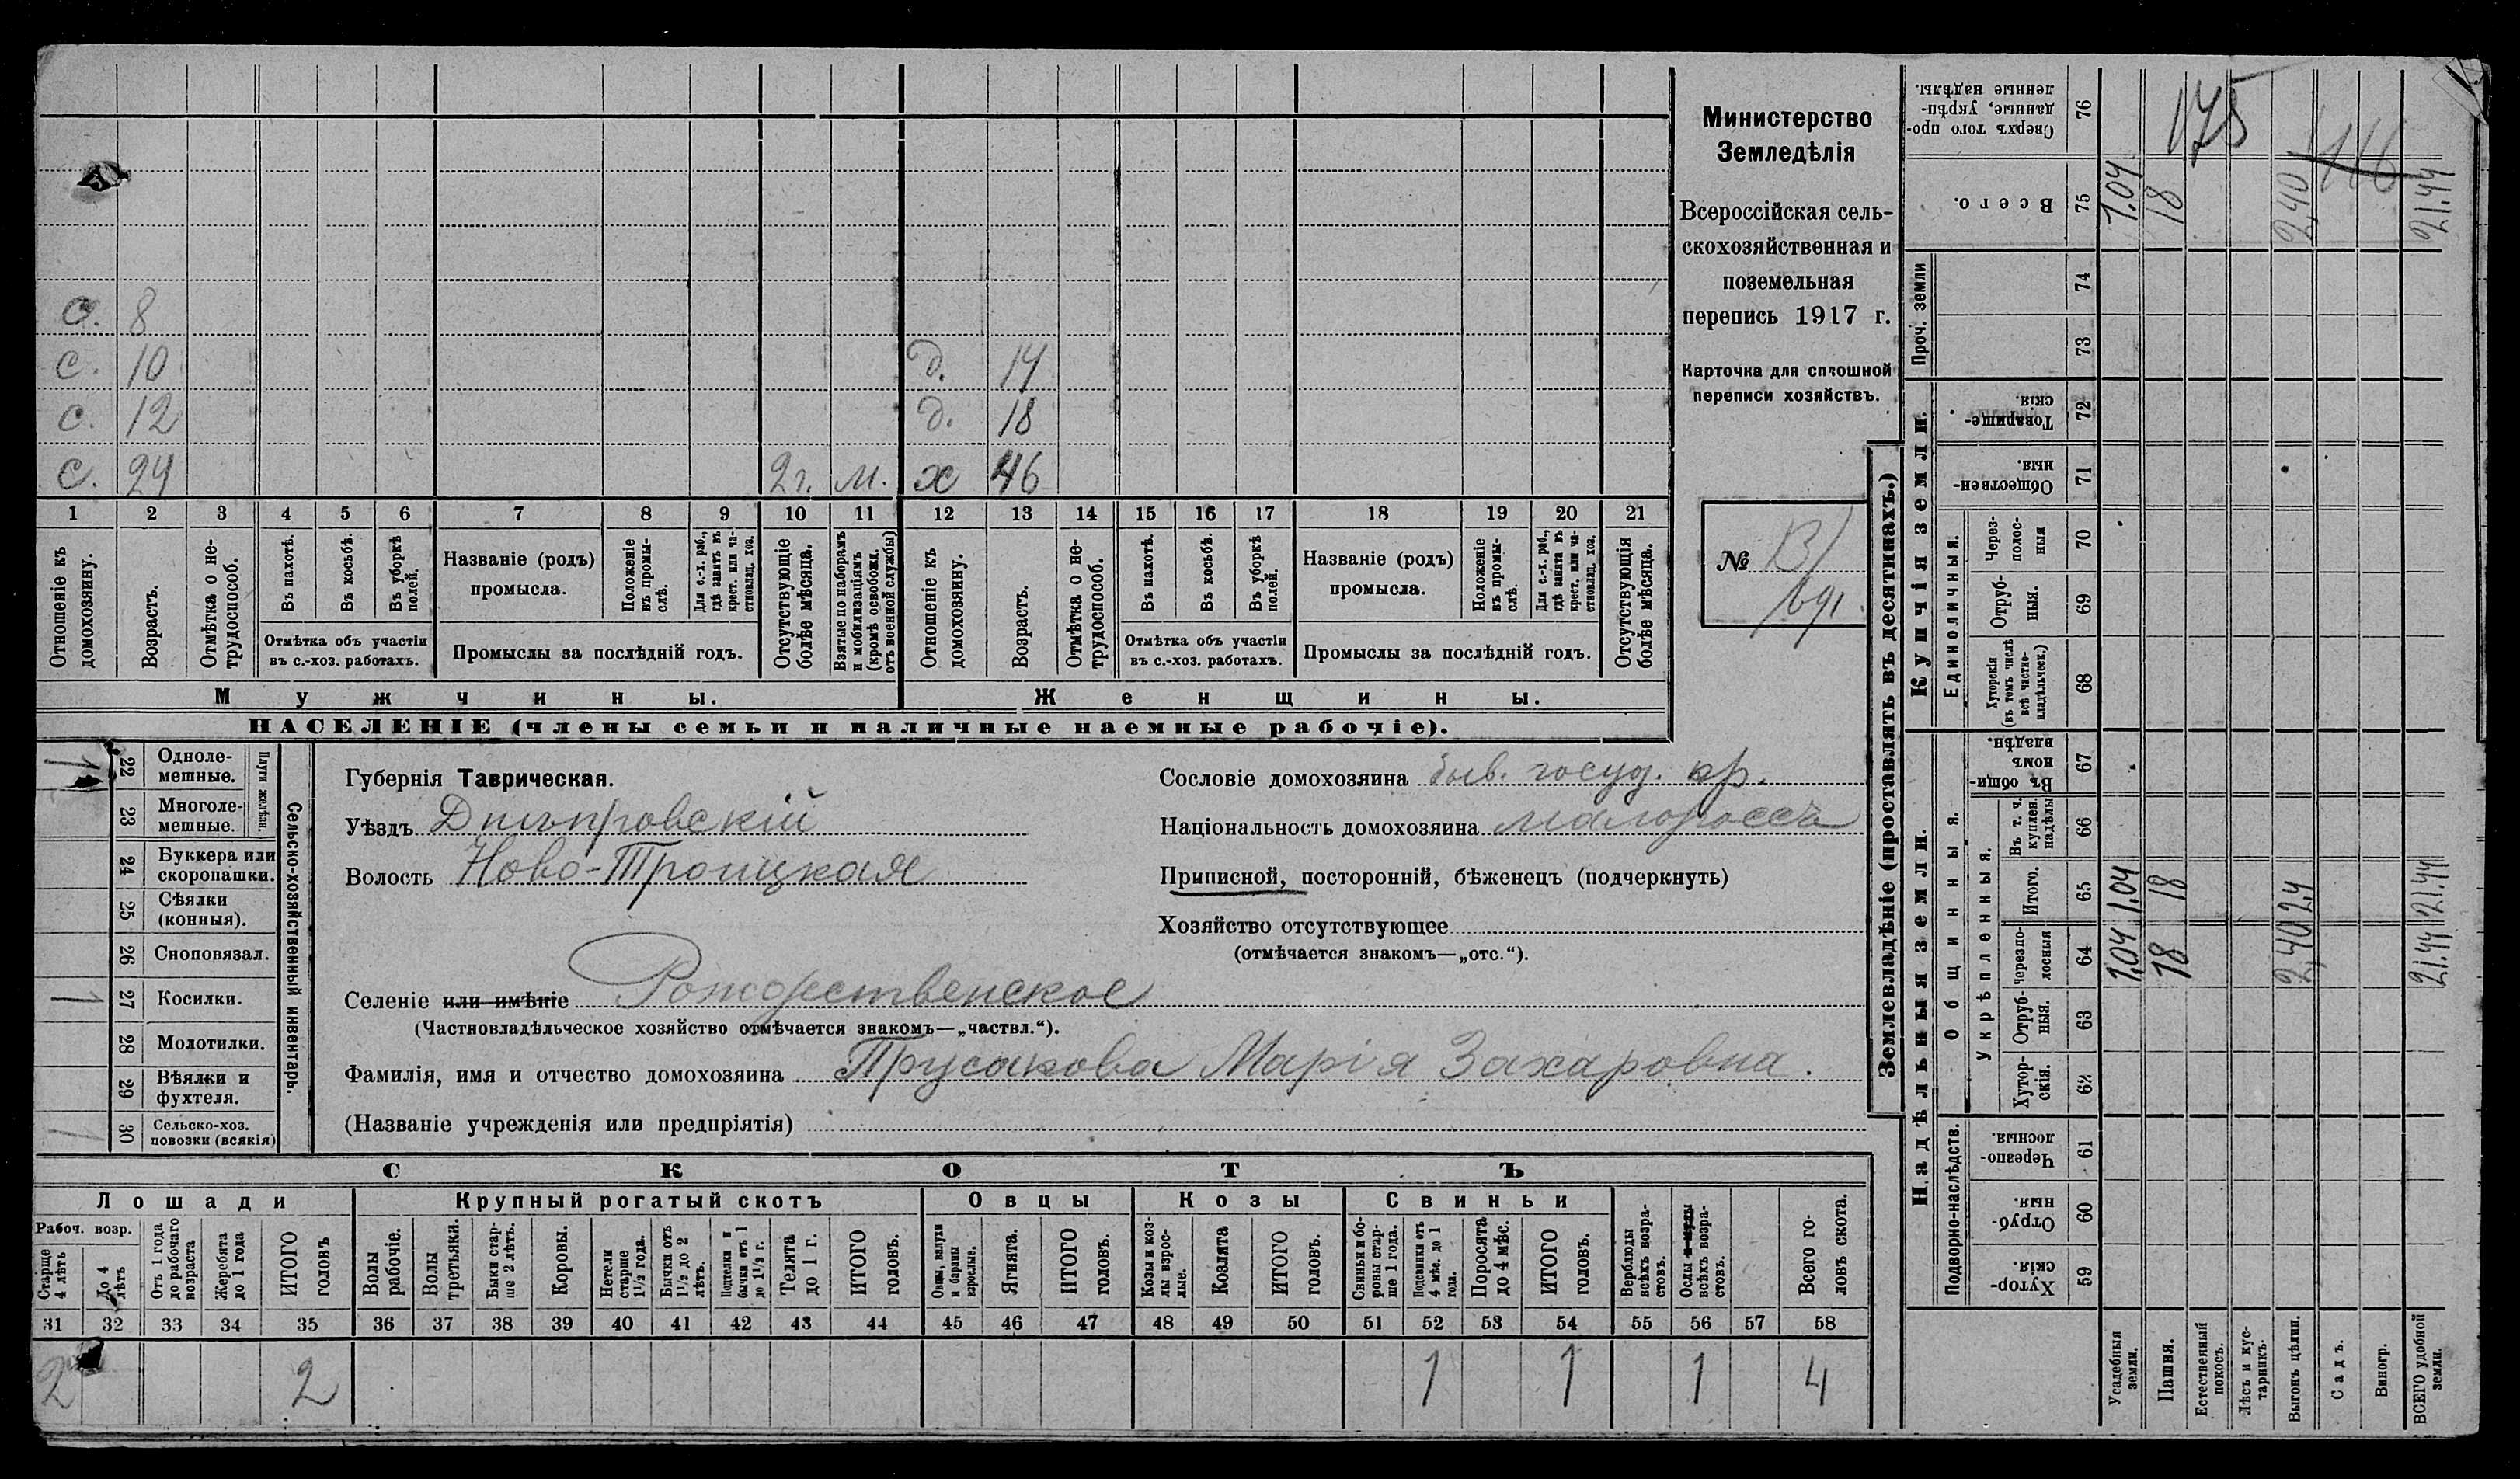 Министерство
Земледѣлія
Всероссійская сель-
скохозяйственная и
поземельная
перепись 1917 г.
Карточка для сплошной
переписи хозяйствъ.
№
с. 10 д. 14
с. 12 д. 18
с. 24 2 г. м. х 46
1 2 3 4 5 6 7 8 9 10 11 12 13 14 15 16 17 18 19 20 21
Отношеніе къ домохозяину.
Возрастъ.
Отмѣтка о не-трудоспособ.
Въ пахотѣ.
Въ косьбѣ.
Въ уборкѣ полей.
Отмѣтка объ участіи
въ с.-хоз. работахъ.
Названіе (родъ)
промысла.
Положеніе въ промы-слѣ.
Для с.-х. раб., гдѣ занятъ въ крест. или ча-стновлад. хоз.
Промыслы за послѣдній годъ.
Отсутствующіе болѣе мѣсяца.
Взятые по наборамъ и мобилизаціямъ (кромѣ освобожд. отъ военной службы)
Отношеніе къ домохозяину.
Возрастъ.
Отмѣтка о не-трудоспособ.
Въ пахотѣ.
Въ косьбѣ.
Въ уборкѣ полей.
Отмѣтка объ участіи
въ с.-хоз. работахъ.
Названіе (родъ)
промысла.
Положеніе въ промы-слѣ.
Для с.-х. раб., гдѣ занятъ въ крест. или ча-стновлад. хоз.
Промыслы за послѣдній годъ.
Отсутствующія болѣе мѣсяца.
Мужчины.
Женщины.
НАСЕЛЕНІЕ (члены семьи и наличные наемные рабочіе).
Сельско-хозяйственный инвентарь.
Плуги желѣзн.
1 22 Одноле-мешные.
23 Многоле-мешные.
24 Буккера или скоропашки.
25 Сѣялки (конныя).
26 Сноповязал.
1 27 Косилки.
28 Молотилки.
29 Вѣялки и фухтеля.
1 30 Сельско-хоз. повозки (всякія)
Губернія Таврическая.
Уѣздъ Днѣпровскій
Волость Ново-Троицкая
Сословіе домохозяина быв. госуд. кр.
Національность домохозяина малороссъ
Приписной, посторонній, бѣженецъ (подчеркнуть)
Хозяйство отсутствующее
(отмѣчается знакомъ—„отс.“).
Селеніе или имѣніе Рождественское
(Частновладѣльческое хозяйство отмѣчается знакомъ—„частвл.“).
Фамилія, имя и отчество домохозяина Трусакова Марія Захаровна.
(Названіе учрежденія или предпріятія)
СКОТЪ
Лошади
Крупный рогатый скотъ
Овцы
Козы
Свиньи
Рабоч. возр.
Старше 4 лѣтъ
До 4 лѣтъ
Отъ 1 года до рабочаго возраста
Жеребята до 1 года
ИТОГО головъ
Волы рабочіе.
Волы третьяки.
Быки стар-ше 2 лѣтъ.
Коровы.
Нетели старше 1½ года.
Бычки отъ 1½ до 2 лѣтъ.
Подтелки и бычки отъ 1 до 1½ г.
Телята до 1 г.
ИТОГО головъ.
Овцы, валухи и бараны взрослые.
Ягнята.
ИТОГО головъ.
Козы и коз-лы взрос-лые.
Козлята
ИТОГО головъ.
Свиньи и бо-ровы стар-ше 1 года.
Подсвинки отъ 4 мѣс. до 1 года.
Поросята до 4 мѣс.
ИТОГО головъ.
Верблюды всѣхъ возра-стовъ.
Ослы и мулы всѣхъ возра-стовъ.
Всего го-ловъ скота.
31 32 33 34 35 36 37 38 39 40 41 42 43 44 45 46 47 48 49 50 51 52 53 54 55 56 57 58
2 2 1 1 1 4
Землевладѣніе (проставлять въ десятинахъ.)
Надѣльныя земли.
Подворно-наслѣдств.
Хутор-скія. 59
Отруб-ныя. 60
Черезпо-лосныя. 61
Общинныя.
Укрѣпленныя.
Хутор-скія. 62
Отруб-ныя. 63
Черезпо-лосныя 64 1.04 18 2,40 21.44
Итого. 65 1.04 18 2,4 21.44
Въ т. ч. куплен. надѣлы 66
Въ общин-номъ владѣн. 67
Купчія земли.
Единоличныя.
Хуторскія (въ томъ числѣ всѣ частно-владѣльческ.) 68
Отруб-ныя. 69
Через-полос-ныя 70
Обществен-ныя. 71
Товарище-скія. 72
Проч. земли
73
74
Всего. 75 1.04 18 2,40 21.44
Сверхъ того про-данные, укрѣп-ленные надѣлы. 76
175
116
Усадебныя земли.
Пашня.
Естественный покосъ.
Лѣсъ и кус-тарникъ.
Выгонъ цѣлин.
Садъ.
Виногр.
ВСЕГО удобной земли.